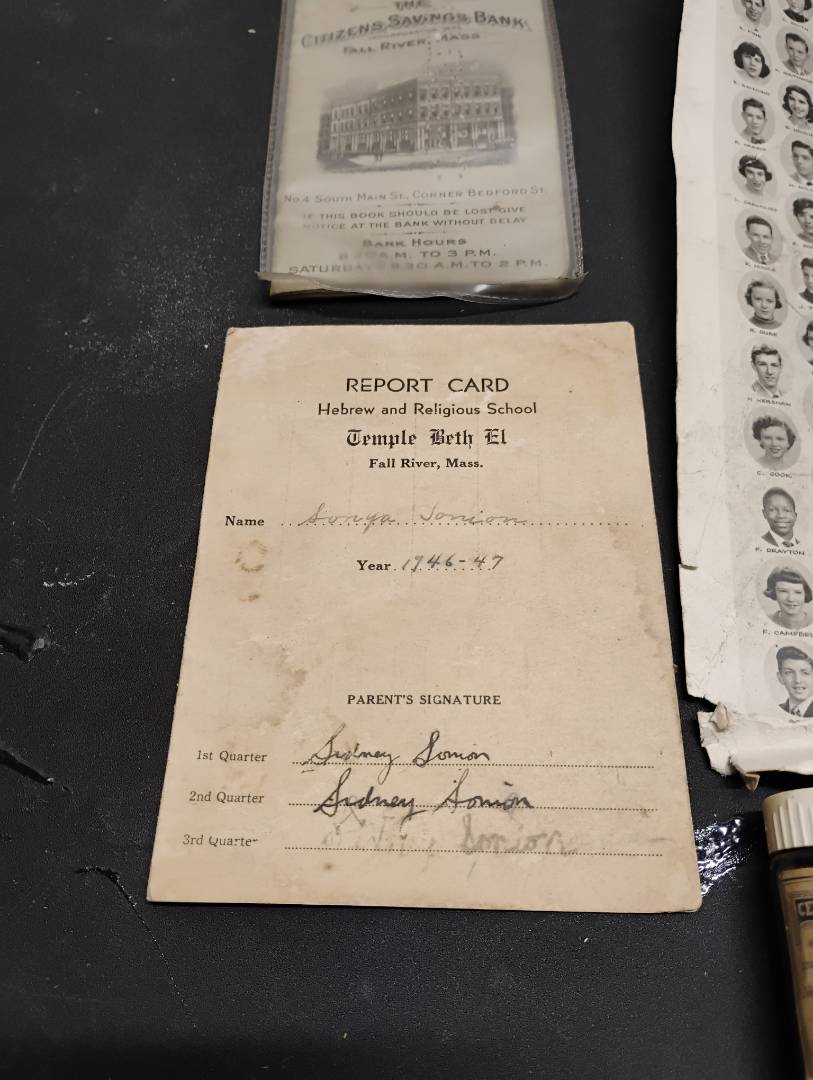 THE
CITIZENS SAVINGS BANK
FALL RIVER, MASS
No. 4 SOUTH MAIN ST., CORNER BEDFORD ST.
IF THIS BOOK SHOULD BE LOST GIVE
NOTICE AT THE BANK WITHOUT DELAY
BANK HOURS
A.M. TO 3 P.M.
SATURDAYS 9.30 A.M. TO 2 P.M.
REPORT CARD
Hebrew and Religious School
Temple Beth El
Fall River, Mass.
Name Sonya Sonion
Year 1946-47
PARENT'S SIGNATURE
1st Quarter Sidney Sonion
2nd Quarter Sidney Sonion
3rd Quarter Sidney Sonion
H. KERSHAW
C. COOK
F. DRAYTON
F. CAMPBEL